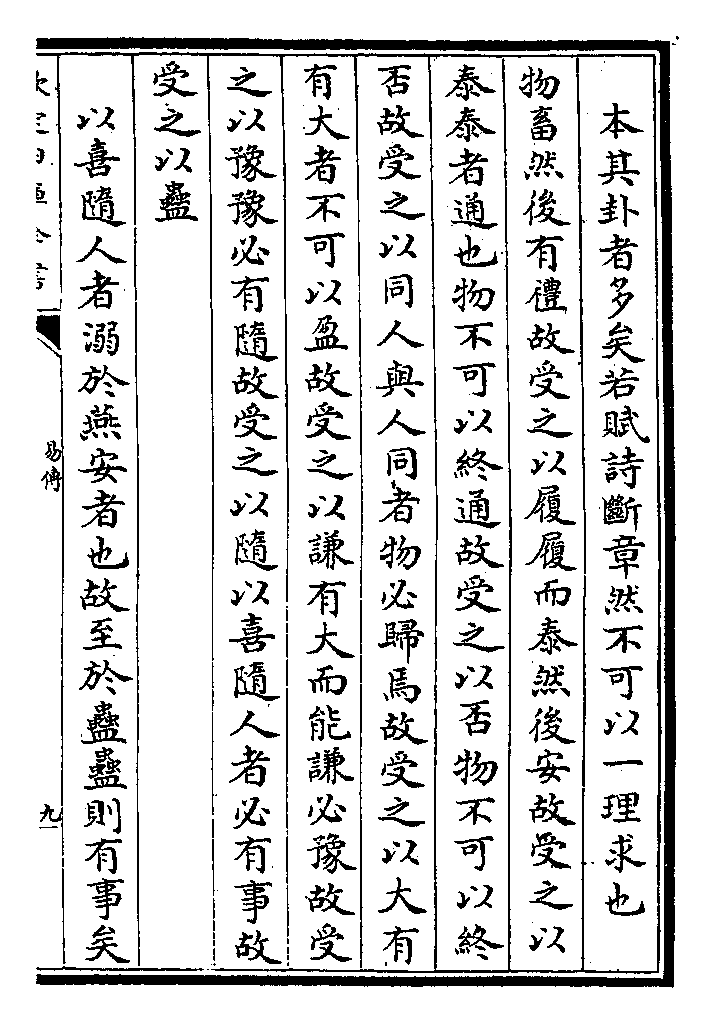 本其卦者多矣若賦詩斷章然不可以一理求也
物畜然後有禮故受之以履履而泰然後安故受之以
泰泰者通也物不可以終通故受之以否物不可以終
否故受之以同人與人同者物必歸焉故受之以大有
有大者不可以盈故受之以謙有大而能謙必豫故受
之以豫豫必有隨故受之以隨以喜隨人者必有事故
受之以蠱
以喜隨人者溺於燕安者也故至於蠱蠱則有事矣
易傳
九